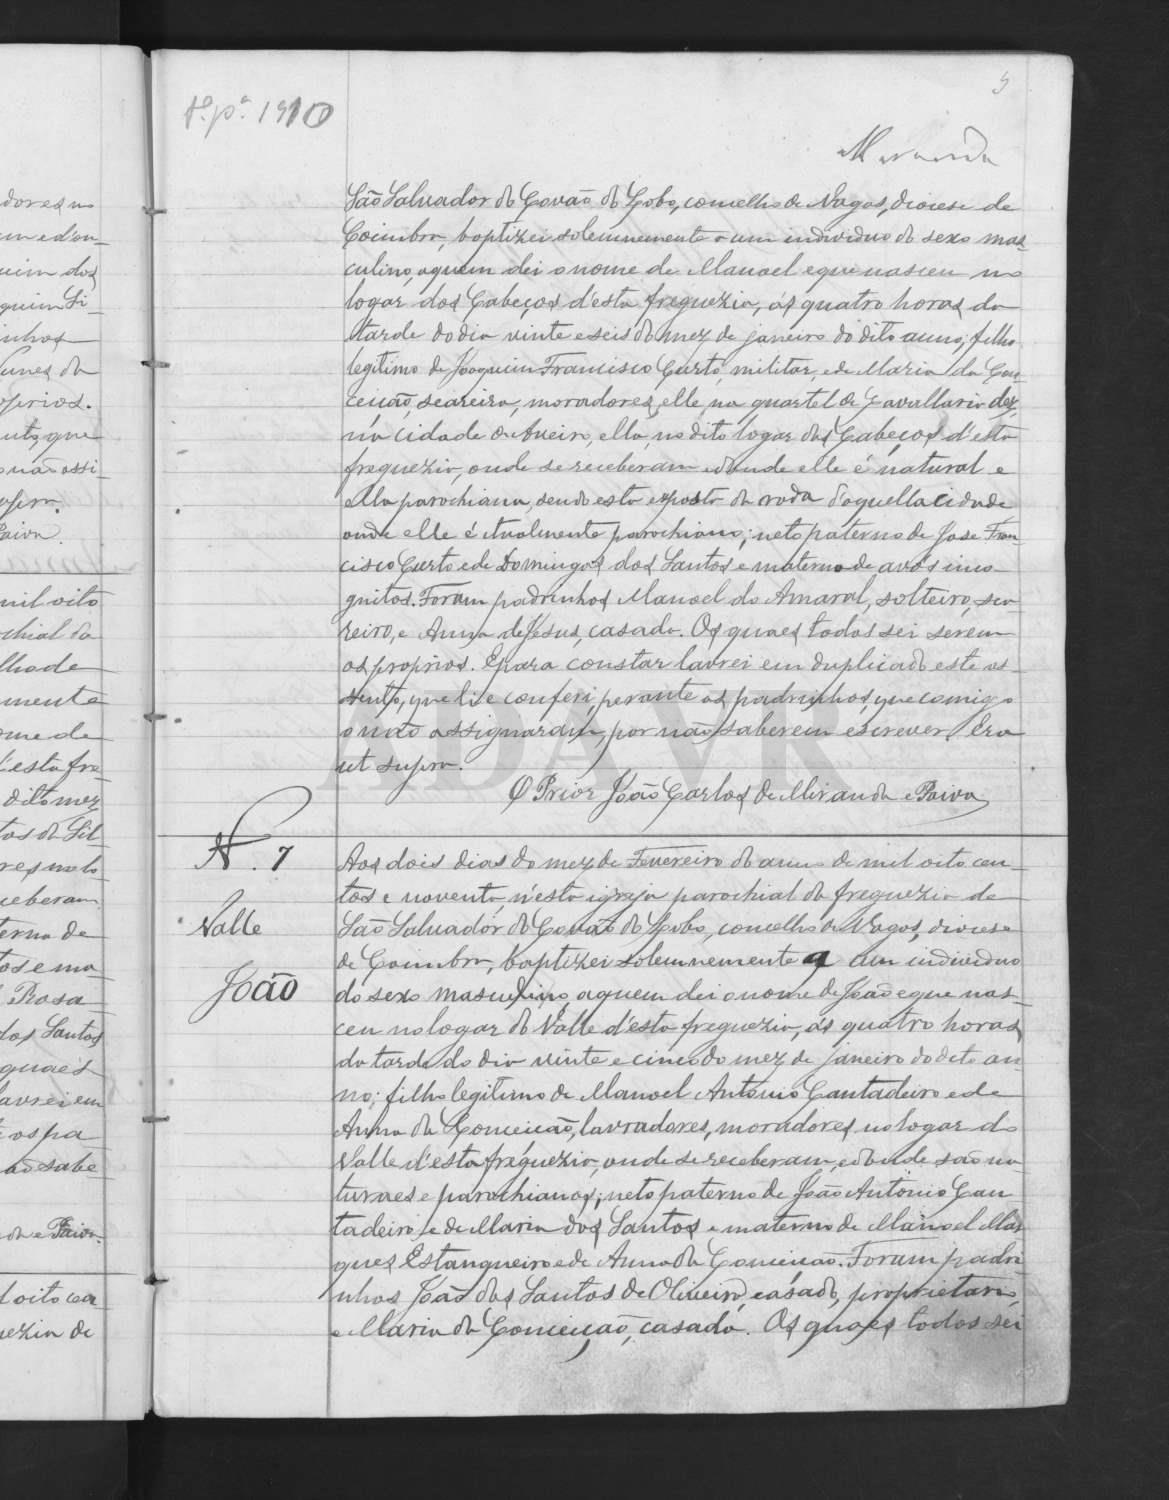 5
1910
Miranda
São Salvador do Covão do Lobo, concelho de Vagos, diocese de
Coimbra, baptizei solemnemente a um individuo do sexo mas-
culino, a quem dei o nome de Manoel e que nasceu no
logar dos Cabeços d'esta freguezia, ás quatro horas da
tarde do dia vinte e seis do mez de janeiro do dito anno, filho
legitimo de Joaquim Francisco Curto, militar, e de Maria da Con-
ceição, seareira, moradores, elle, no quartel de Cavallaria dez,
na cidade de Aveiro, ella, no dito logar dos Cabeços d'esta
freguezia, onde se receberam e d'onde elle é natural e
ella parochiana, sendo esta exposta da roda d'aquella cidade
onde elle é atualmente parochiano; neto paterno de José Fran-
cisco Curto e de Domingas dos Santos e materno de avós inco-
gnitos. Foram padrinhos Manoel do Amaral, solteiro, sea-
reiro, e Anna de Jesus, casada. Os quaes todos sei serem
os proprios. E para constar lavrei em duplicado este as-
sento, que li e conferi, perante os padrinhos, que comigo
o não assignaram, por não saberem escrever. Era
ut supra.
O Prior João Carlos de Miranda e Paiva
N. 7
Valle
João
Aos dois dias do mez de Fevereiro do anno de mil oito cen-
tos e noventa, n'esta igreja parochial da freguezia de
São Salvador do Covão do Lobo, concelho de Vagos, diocese
de Coimbra, baptizei solemnemente a um individuo
do sexo masculino, a quem dei o nome de João e que nas-
ceu no logar do Valle d'esta freguezia, ás quatro horas
da tarde do dia vinte e cinco do mez de janeiro do dito an-
no; filho legitimo de Manoel Antonio Cantadeiro e de
Anna da Conceição, lavradores, moradores no logar do
Valle d'esta freguezia, onde se receberam, e d'onde são na-
turaes e parochianos; neto paterno de João Antonio Can-
tadeiro e de Maria dos Santos e materno de Manoel Mar-
ques Estanqueiro e de Anna da Conceição. Foram padri-
nhos João dos Santos de Oliveira, casado, proprietario,
e Maria da Conceição, casada. Os quaes todos sei
ADAVR